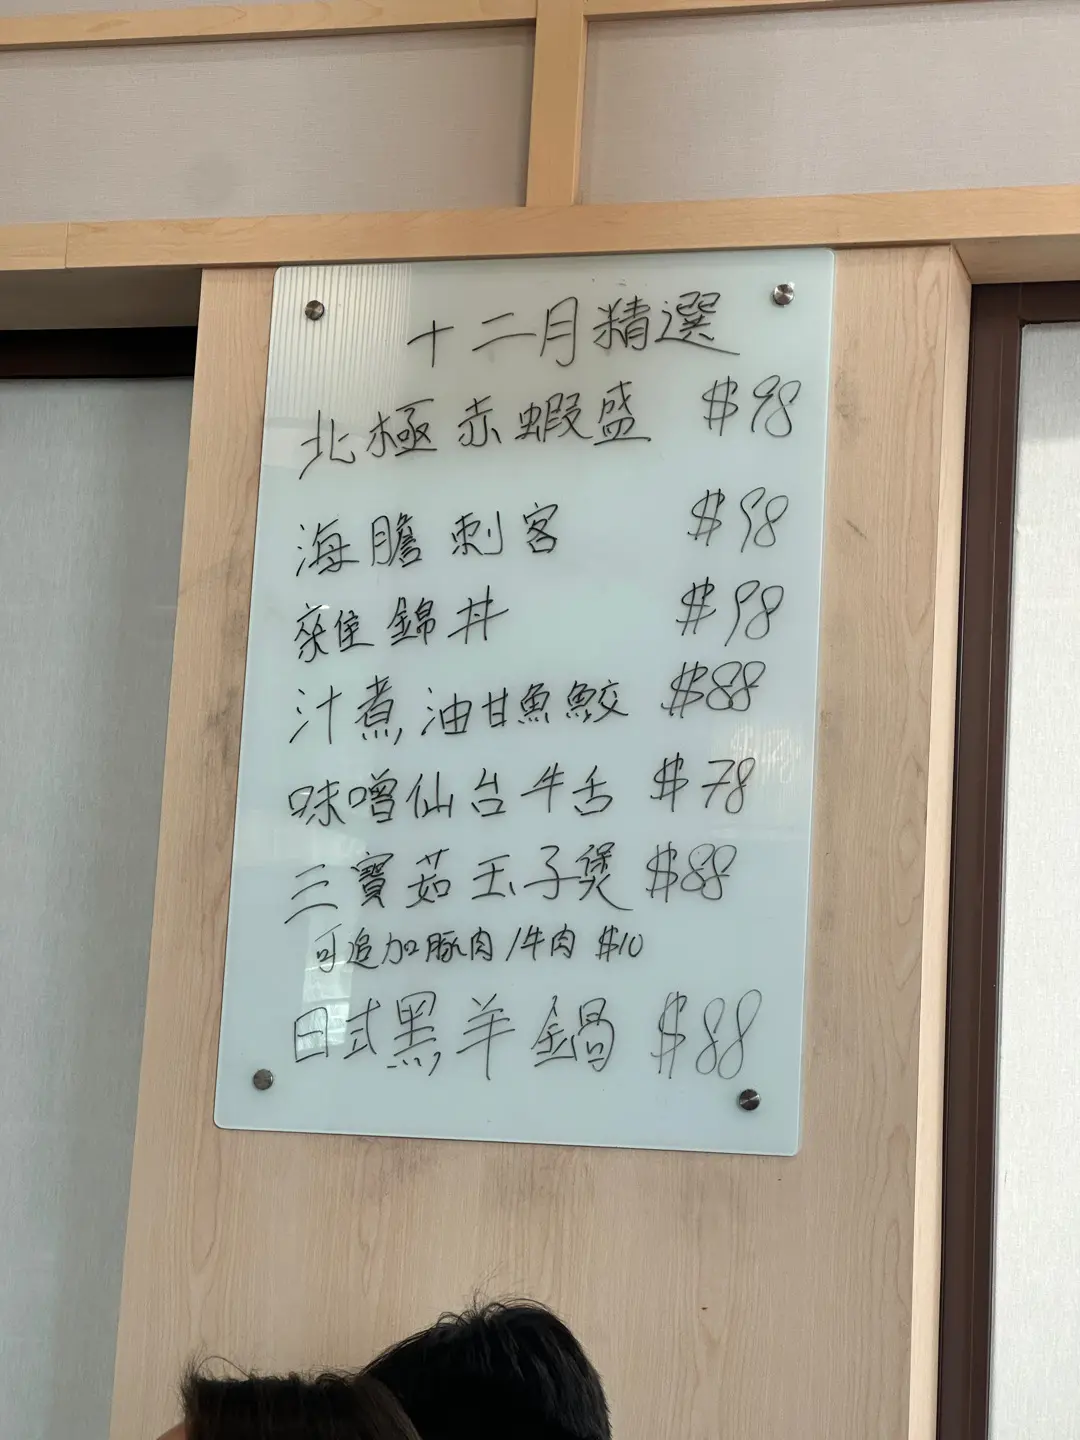 十二月精選
北極赤蝦盛 $98
海膽刺客 $98
雜錦丼 $98
汁煮油甘魚鮫 $88
味噌仙台牛舌 $78
三寶菇玉子煲 $88
可追加豚肉/牛肉 $10
日式黑羊鍋 $88